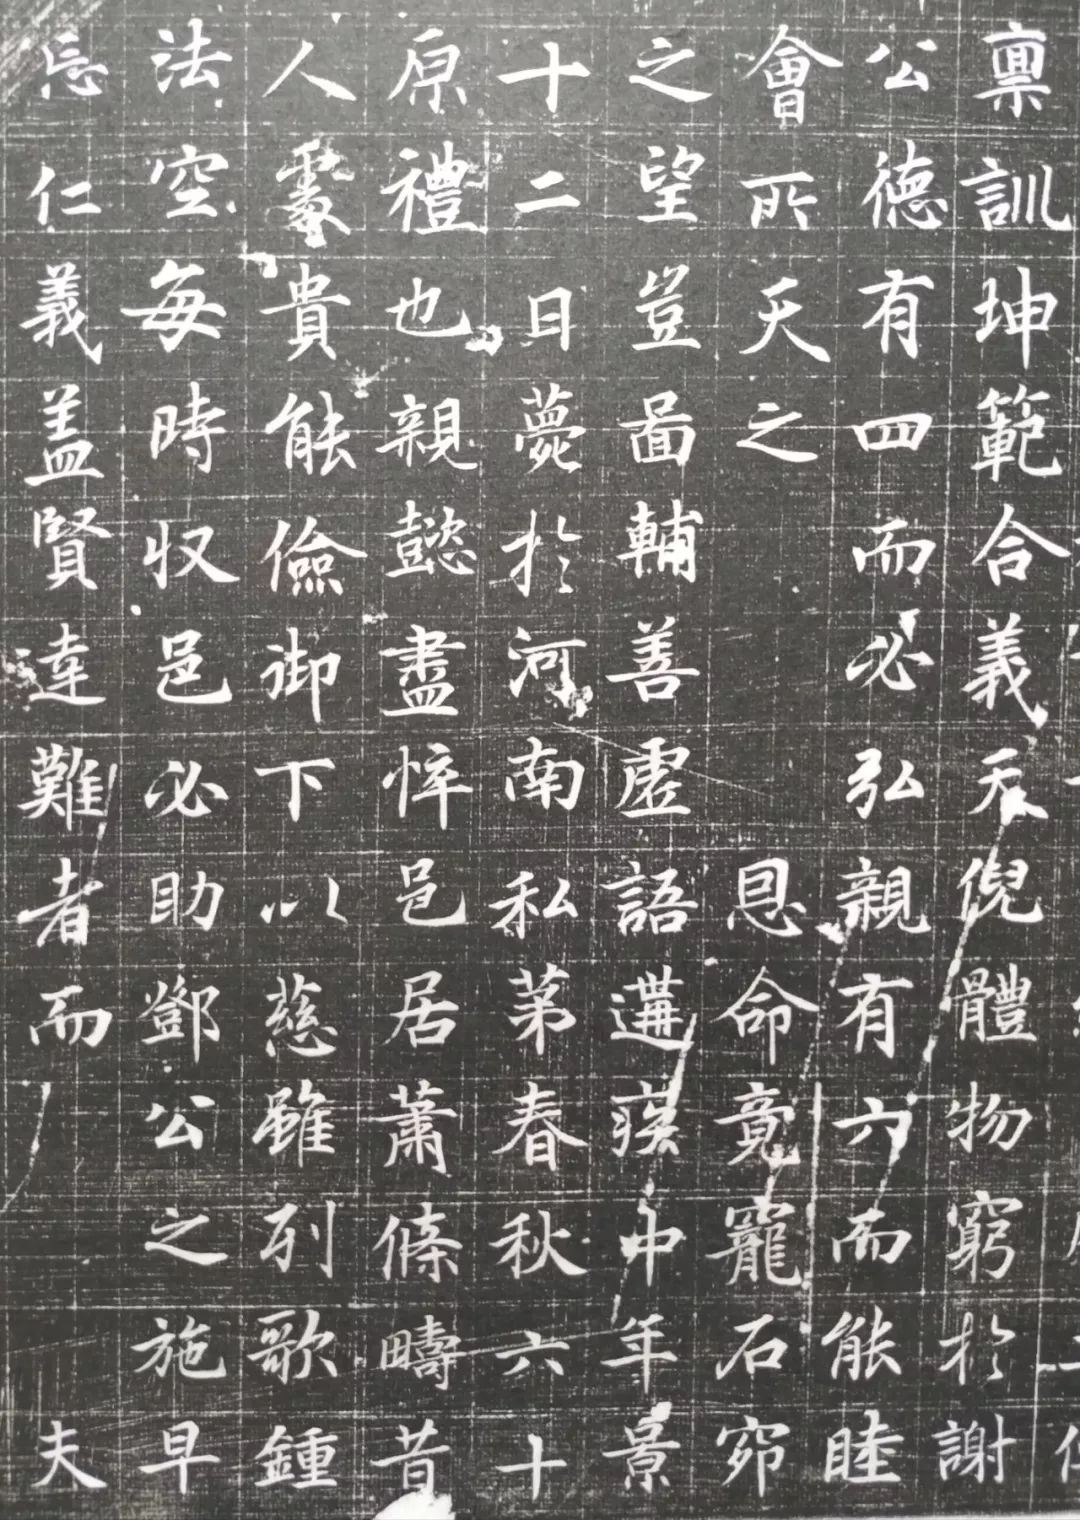 禀訓坤範合義天倪體物窮於謝
公德有四而必弘親有六而能睦
會所天之 恩命竟寵石窌
之望豈啚輔善虛語遘疾中年景
十二日薨於河南私苐春秋六十
原禮也親懿盡悴邑居蕭條疇昔
人處貴能儉御下以慈雖列歌鍾
法空每時收邑必助鄧公之施早
忘仁義盖賢達難者而 夫